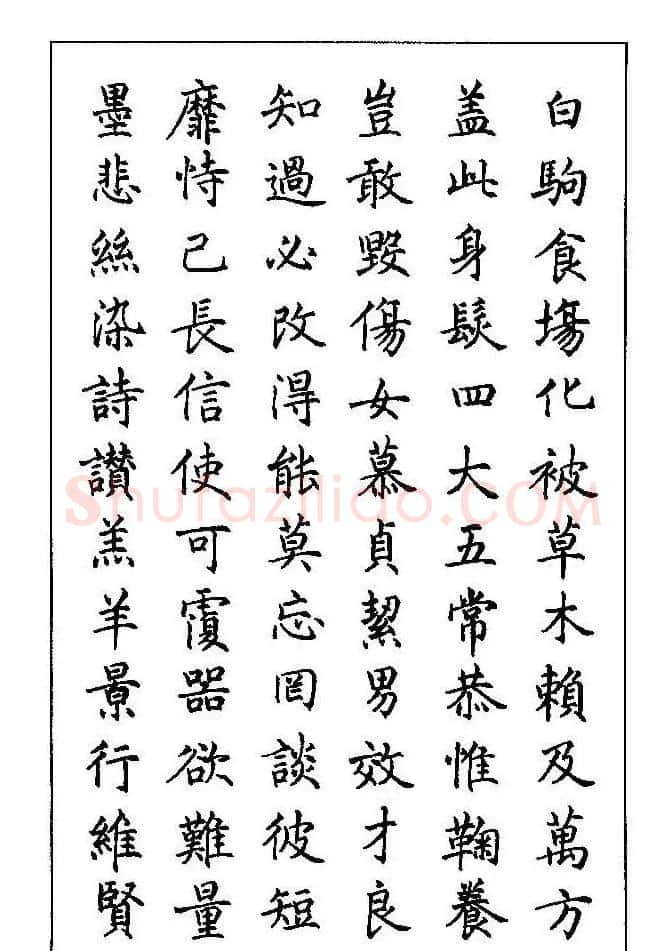 白駒食塲化被草木賴及萬方
盖此身髮四大五常恭惟鞠養
豈敢毀傷女慕貞絜男效才良
知過必改得能莫忘罔談彼短
靡恃己長信使可覆器欲難量
墨悲絲染詩讚羔羊景行維賢
Shufaziliao.COM